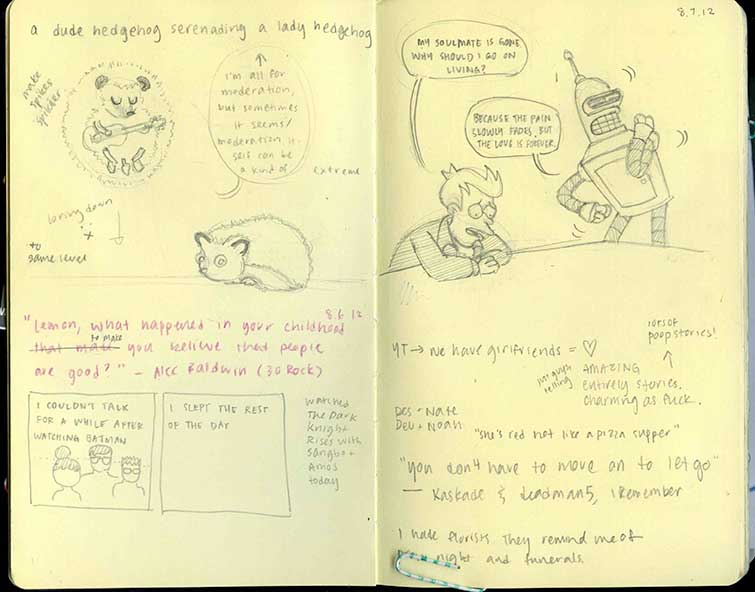 a dude hedgehog serenading a lady hedgehog
make
spikes
↑
I'm all for
moderation,
but sometimes
it seems/
moderation it
self can be
a kind of extreme
down
x
to
same level
8.6.12
"Lemon, what happened in your childhood
to make
that made you believe that people
are good?" - Alec Baldwin (30 Rock)
I COULDN'T TALK
FOR A WHILE AFTER
WATCHING BATMAN
I SLEPT THE REST
OF THE DAY
watched
The Dark
Knight
Rises with
sangbo +
Amos
today
8.7.12
MY SOULMATE IS GONE
WHY SHOULD I GO ON
LIVING?
BECAUSE THE PAIN
SLOWLY FADES, BUT
THE LOVE IS FOREVER.
lots of
poop stories!
↑
YT → we have girlfriends = ♡
just guys
telling
AMAZING
entirely stories.
charming as fuck.
Des + Nate
Dev + Noah
"she's red hot like a pizza supper"
"you don't have to move on to let go"
— Kaskade & deadmau5, I Remember
I hate florists. They remind me of
night and funerals.